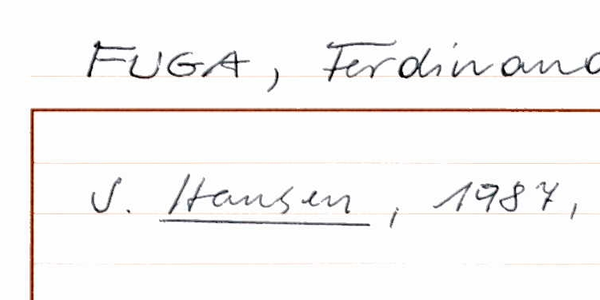 FUGA, Ferdinand
S. Hansen, 1987,